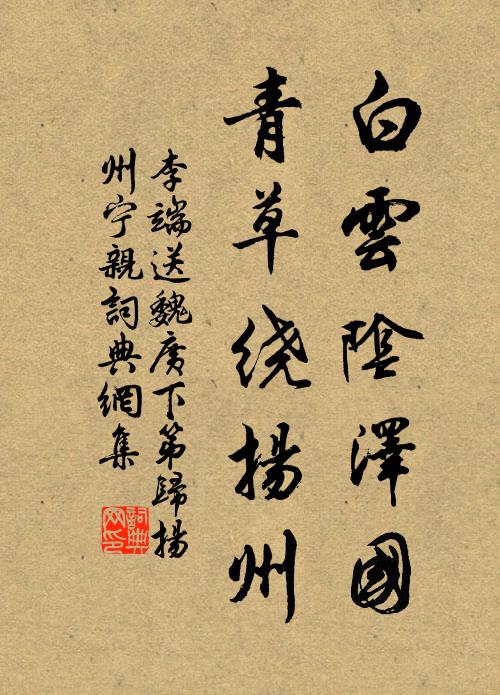 白雲陰澤國
青草绕揚州
李端送魏廣下第歸揚
州宁親詞典網集
詞典
网印